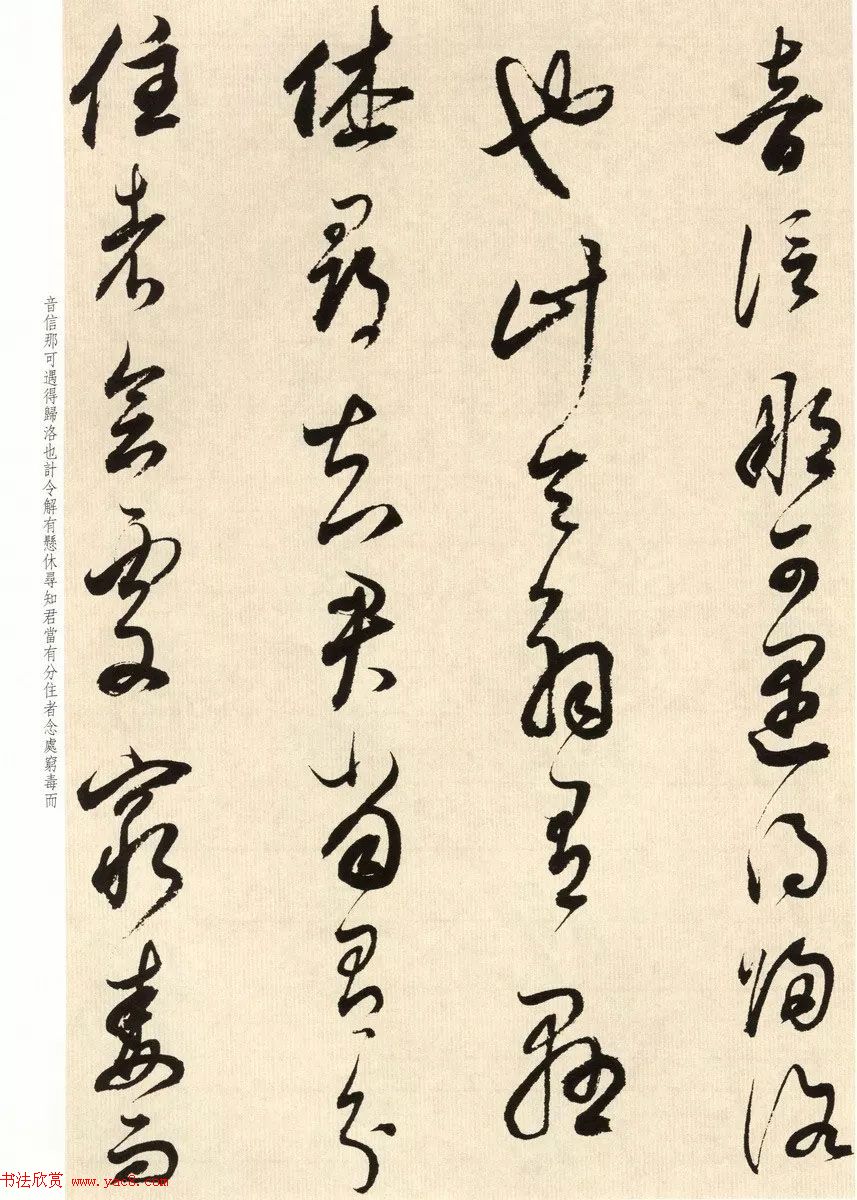 音信那可遇得歸洛
也計令解有懸
休尋知君當有分
住者念處窮毒而
音信那可遇得歸洛也計令解有懸休尋知君當有分住者念處窮毒而
书法欣赏 www.yac8.com